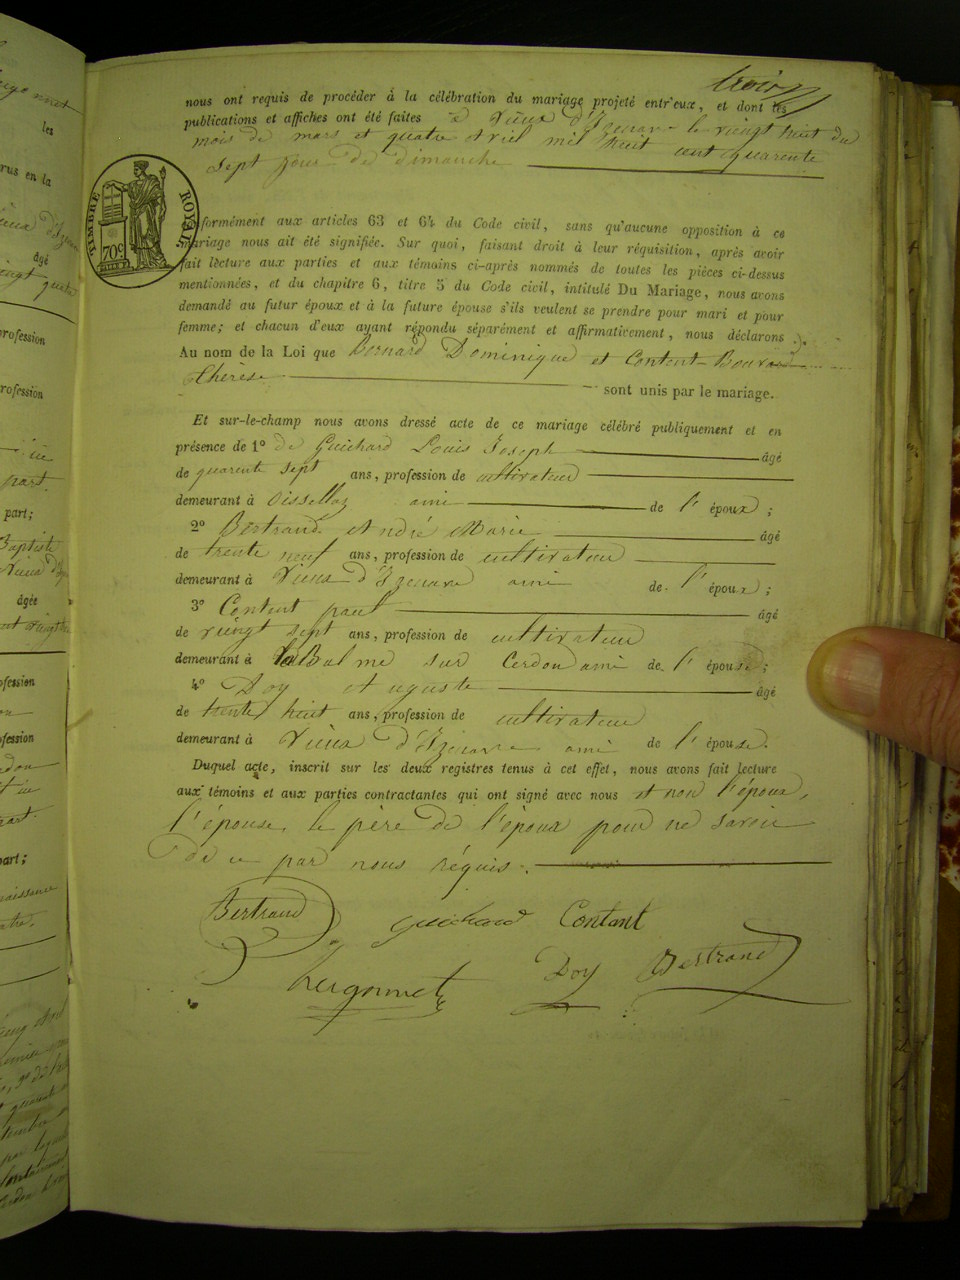 trois
nous ont requis de procéder à la célébration du mariage projeté entr'eux, et dont les
publications et affiches ont été faites à Vieux d'Izenave le vingt huit du
mois de mars et quatre avril mil huit cent quarante
sept jour de dimanche
TIMBRE ROYAL
70c
formément aux articles 63 et 64 du Code civil, sans qu'aucune opposition à ce
mariage nous ait été signifiée. Sur quoi, faisant droit à leur réquisition, après avoir
fait lecture aux parties et aux témoins ci-après nommés de toutes les pièces ci-dessus
mentionnées, et du chapitre 6, titre 5 du Code civil, intitulé Du Mariage, nous avons
demandé au futur époux et à la future épouse s'ils veulent se prendre pour mari et pour
femme; et chacun d'eux ayant répondu séparément et affirmativement, nous déclarons
Au nom de la Loi que Bernard Dominique et Content-Bouvard
Thérèse sont unis par le mariage.
Et sur-le-champ nous avons dressé acte de ce mariage célébré publiquement et en
présence de 1º de Guichard Louis Joseph âgé
de quarente sept ans, profession de cultivateur
demeurant à Oissellaz ami de l'époux;
2º Bertrand André Marie âgé
de trente neuf ans, profession de cultivateur
demeurant à Vieux d'Izenave ami de l'époux;
3º Content paul âgé
de vingt sept ans, profession de cultivateur
demeurant à La Balme sur Cerdon ami de l'épouse;
4º Doy Auguste âgé
de trente huit ans, profession de cultivateur
demeurant à Vieux d'Izenave ami de l'épouse.
Duquel acte, inscrit sur les deux registres tenus à cet effet, nous avons fait lecture
aux témoins et aux parties contractantes qui ont signé avec nous et non l'époux,
l'épouse, le père de l'époux pour ne savoir
de ce par nous réquis.
Bertrand guichard Contant
hugonnet Doy Bertrand